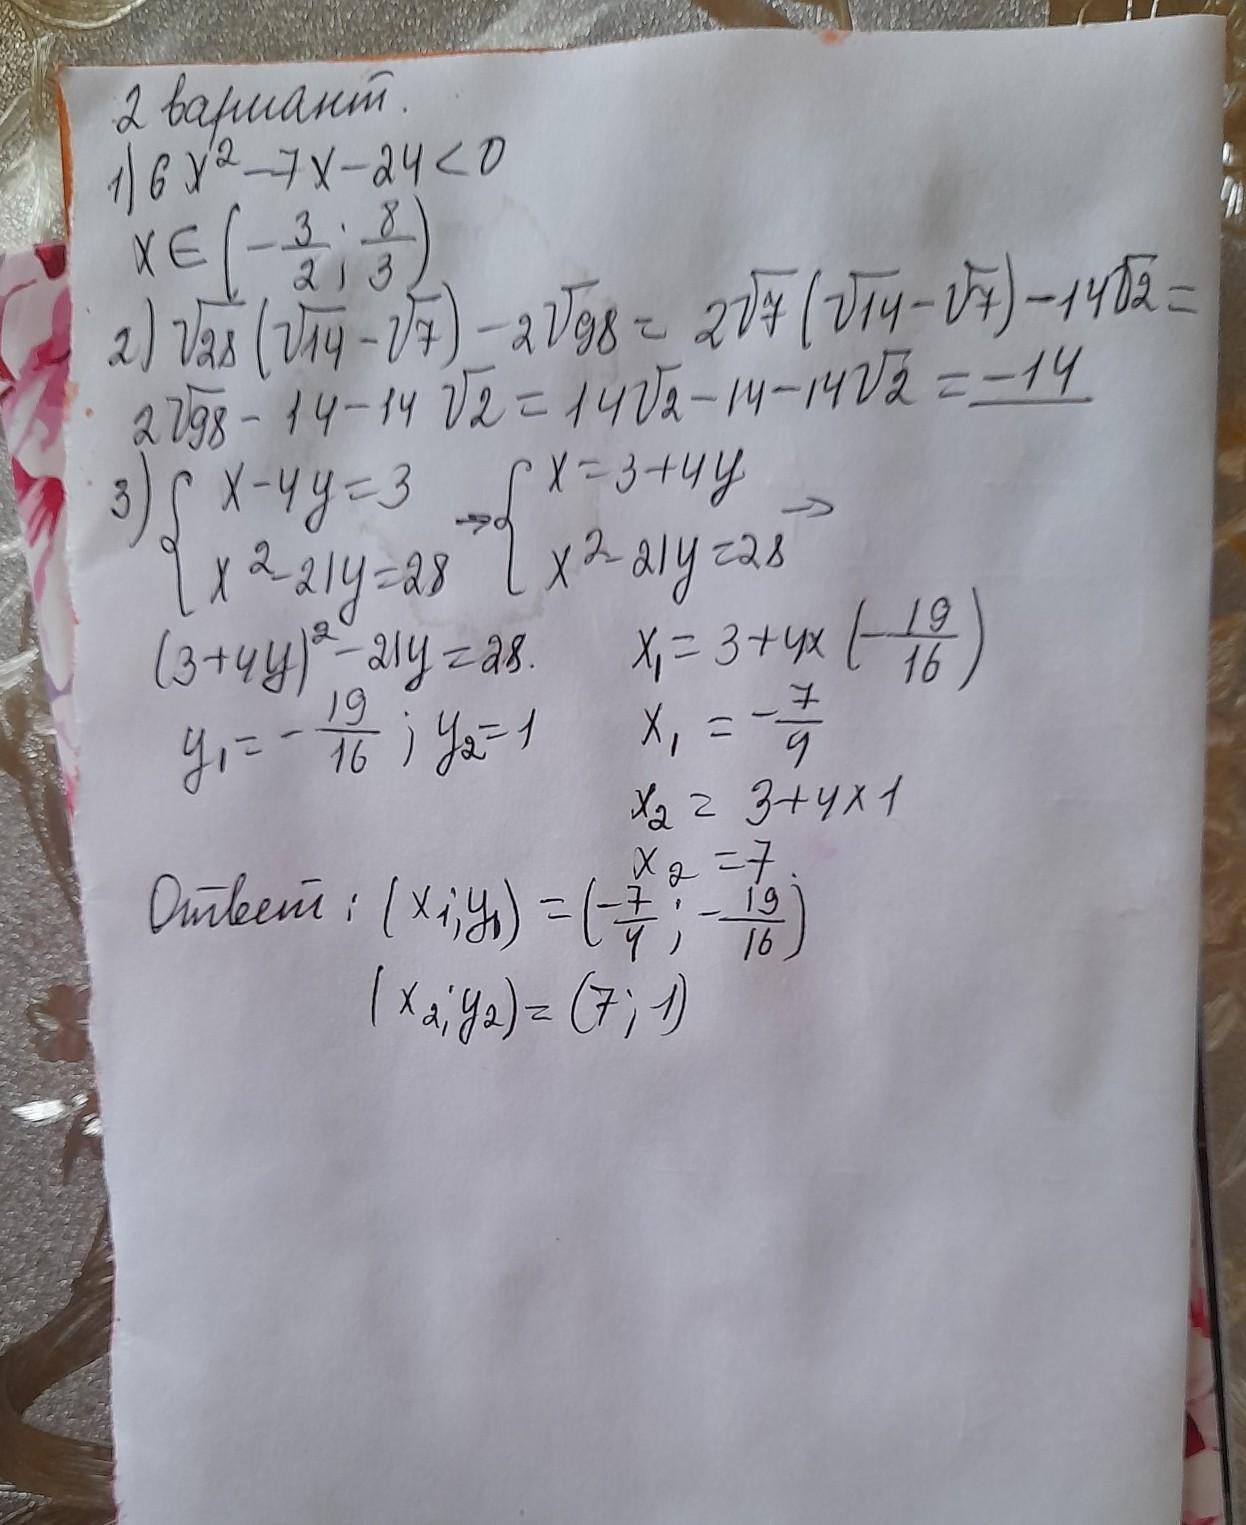 2 вариант.
1) 6x² - 7x - 24 < 0
x ∈ (-3/2; 8/3)
2) √28 (√14 - √7) - 2√98 = 2√7 (√14 - √7) - 14√2 =
2√98 - 14 - 14√2 = 14√2 - 14 - 14√2 = -14
3) { x - 4y = 3 → { x = 3 + 4y
x² - 21y = 28 x² - 21y = 28 →
(3 + 4y)² - 21y = 28.
y₁ = -19/16 ; y₂ = 1
x₁ = 3 + 4x (-19/16)
x₁ = -7/4
x₂ = 3 + 4x1
x₂ = 7.
Ответ: (x₁; y₁) = (-7/4; -19/16)
(x₂; y₂) = (7; 1)